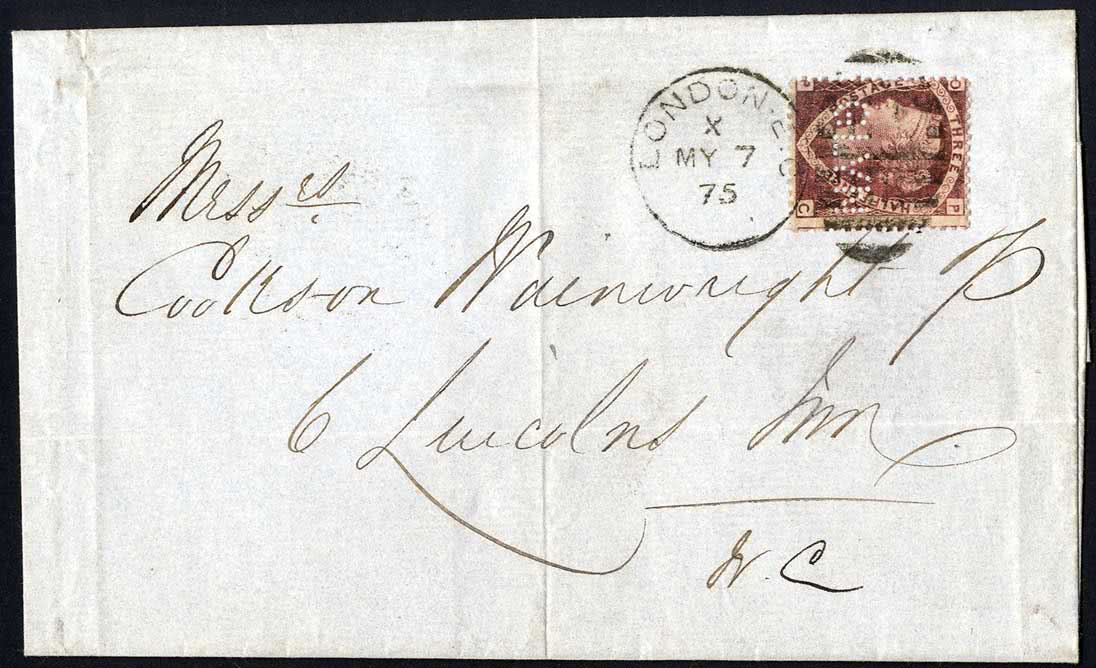 LONDON·E.C
X
MY 7
75
POSTAGE
THREE
HALFPENCE
O
P
P
C
Mess^rs
Cookson Wainwright &
6 Lincolns Inn
W. C